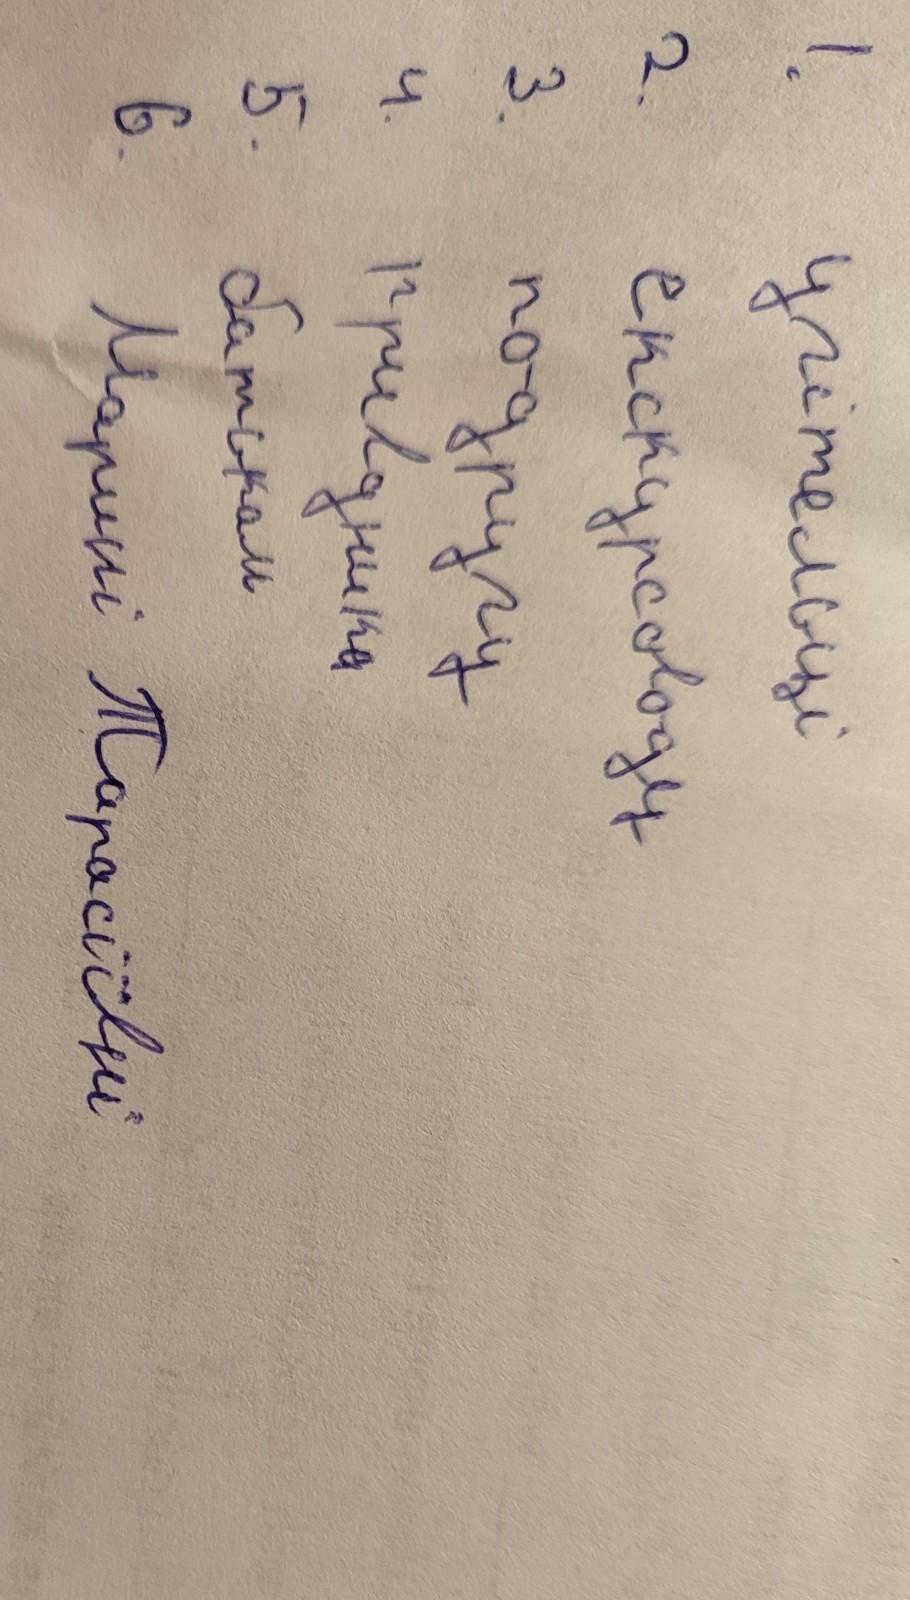 1. учітельці
2. екскурсоводу
3. подругу
4. привідника
5. батькам
6. Марині Тарасівні